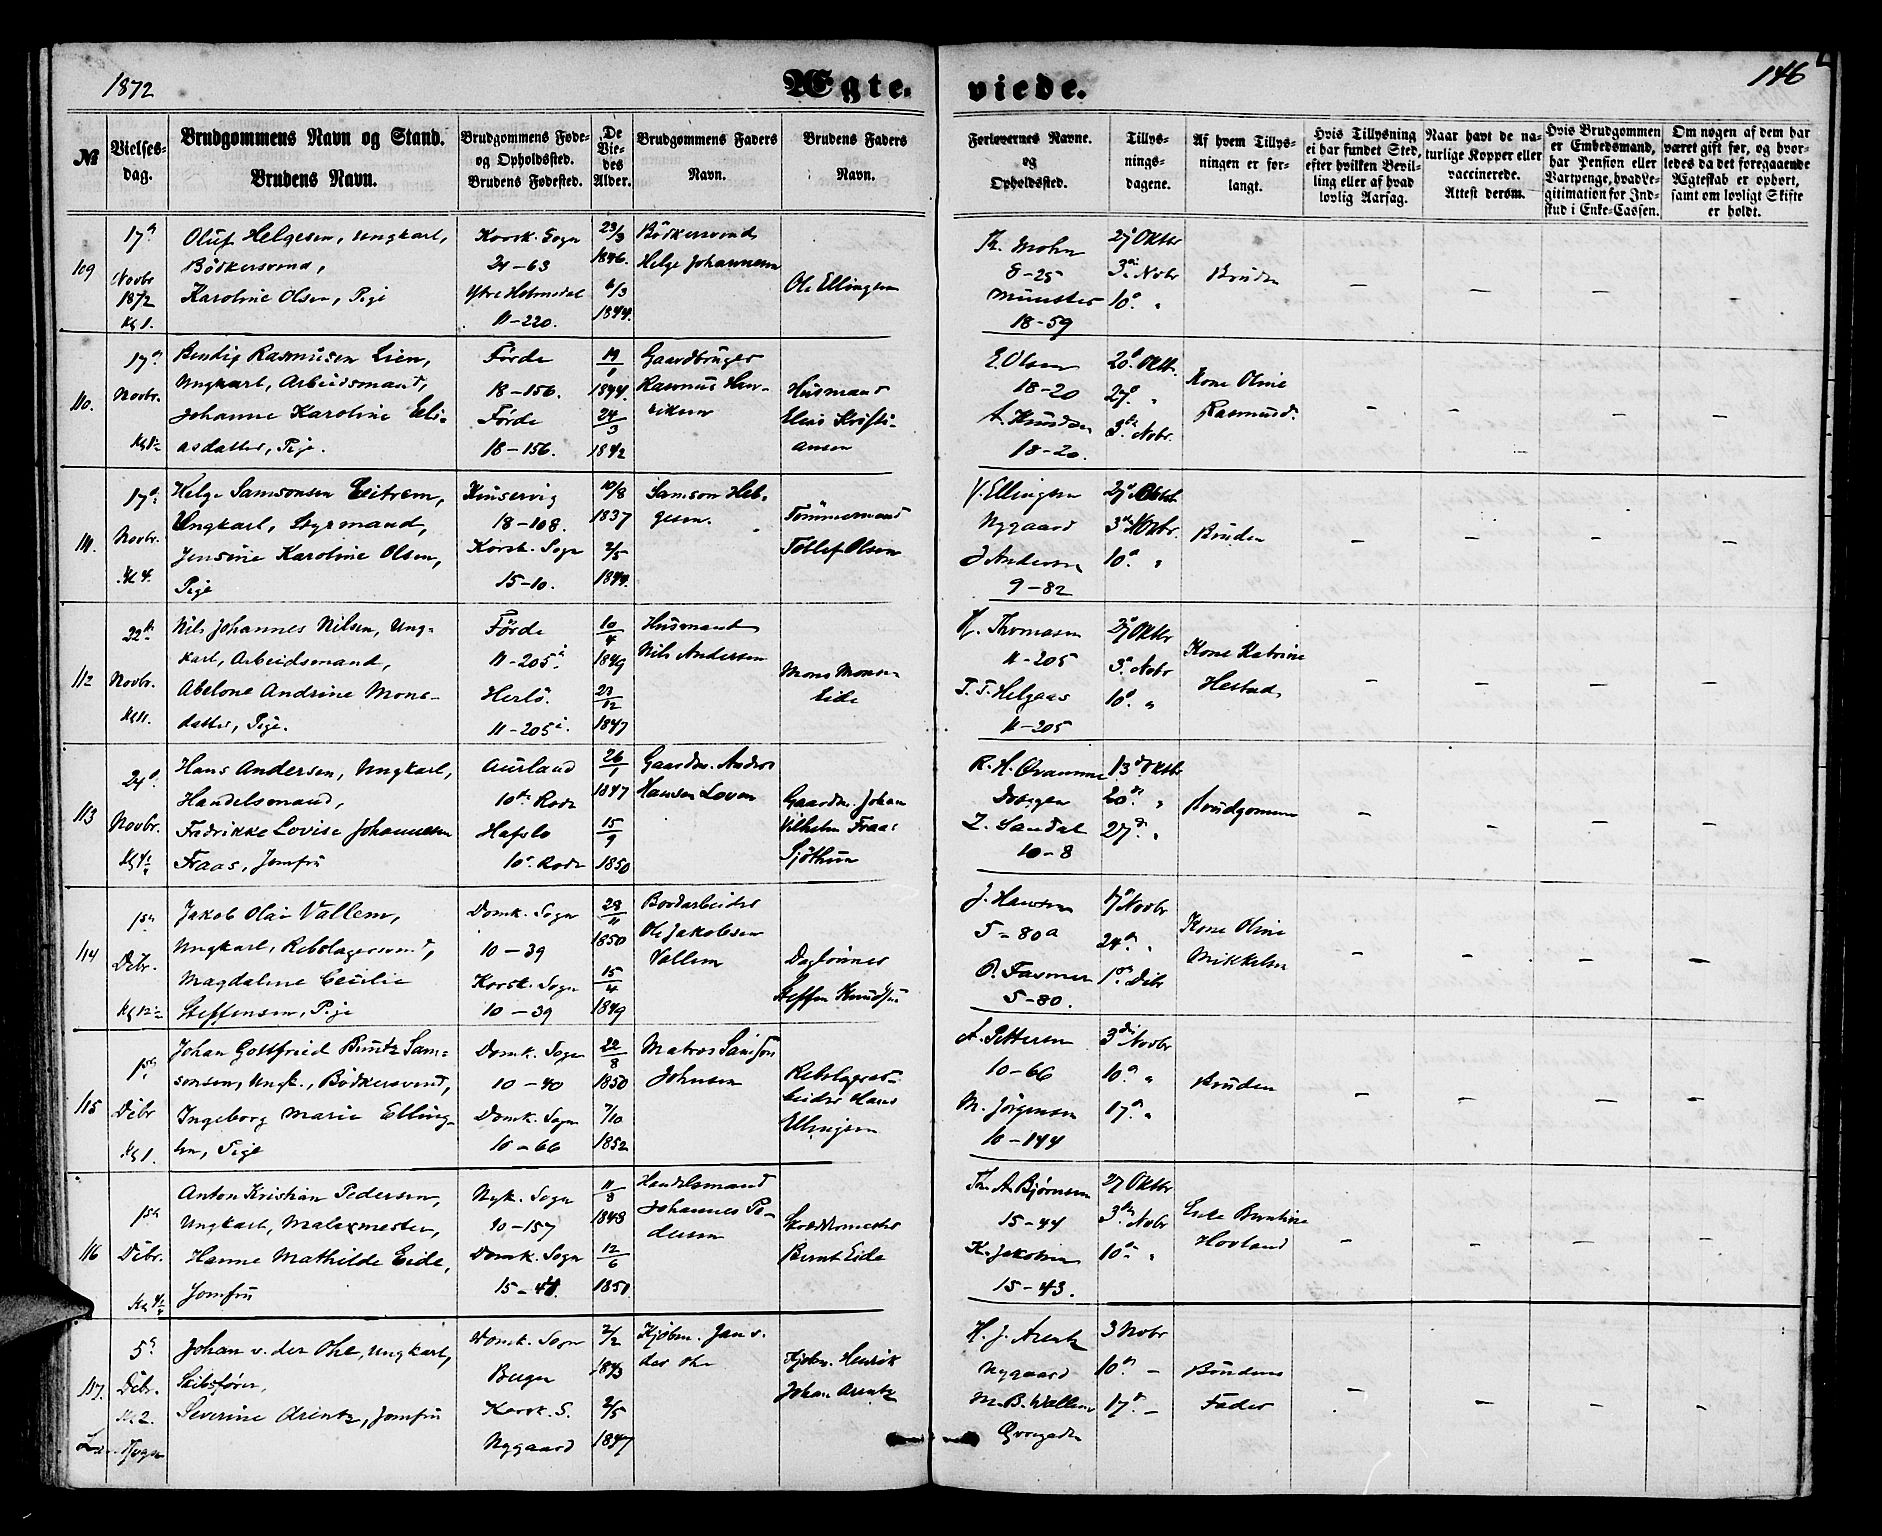 1872
Ægte- viede.
146
№
Vielses-
dag.
Brudgommens Navn og Stand.
Brudens Navn.
Brudgommens Føde-
og Opholdssted.
Brudens Fødested.
De
Vie-
des
Alder.
Brudgommens Faders
Navn.
Brudens Faders
Navn.
Forlovernes Navne.
og
Opholdssted.
Tillys-
nings-
dagene.
Af hvem Tillys-
ningen er for-
langt.
Hvis Tillysning
ei har fundet Sted,
efter hvilken Bevil-
ling eller af hvad
lovlig Aarsag.
Naar havt de na-
turlige Kopper eller
vaccinerede.
Attest derom.
Hvis Brudgommen
er Embedsmand,
har Pension eller
Vartpenge, hvad Le-
gitimation for Ind-
skud i Enke-Cassen.
Om nogen af dem har
været gift før, og hvor-
ledes da det foregaaende
Ægteskab er ophørt,
samt om lovligt Skifte
er holdt.
109
17de
Novbr
1872
Kl 1.
Oluf Helgesen, Ungkarl,
Bödkersvend,
Karoline Olsen, Pige
Korsk. Sogn
24-63
Ytre Holmedal
11-220.
23/3
1846.
6/3
1844.
Bödkersvend
Helge Johannesen
Ole Ellingsen
Th. Mohn
8-25
Münster
18-59
27 Oktbr
3die Novbr
10de "
Bruden
110.
17de
Novbr.
Bendix Rasmusen Lien,
Ungkarl, Arbeidsmand,
Johanne Karoline Eli-
asdatter, Pige.
Förde
18-156.
Förde
18-156.
1844.
24/3
1842
Gaardbruger
Rasmus Hen-
riksen
Husmand
Elias Kristi-
ansen
E. Olsen
18-20
A. Knudsen
18-20.
20de Oktb.
27de "
3die Nobr.
Kone Oline
Rasmusd.
111.
17de
Novbr.
Kl 4.
Helge Samsonsen Eitrem,
Ungkarl, Styrmand,
Jensine Karoline Olsen,
Pige
Kinservig
18-108.
Korsk. Sogn
15-10.
10/8
1837
2/5
1844.
Samson Hel-
gesen.
Tömmermand
Tollef Olsen
J. Ellingsen
Nygaard
J Andersen
9-82
27de Oktbr.
3die Novbr.
10de "
Bruden
112
22de
Novbr.
Kl 11.
Nils Johannes Nilsen, Ung-
karl, Arbeidsmand,
Abelone Andrine Mons-
datter, Pige.
Förde
11-205 i.
Herlö.
11-205 i.
10/4
1849
23/12
1847
Husmand
Nils Andersen
Mons Monsen
Eide
H. Thomasen
11-205
T. T. Helgaas
11-205
27 Oktbr
3die Nobr
10de "
Kone Katrine
Hestad
113
24de
Novbr.
Hans Andersen, Ungkarl,
Handelsmand,
Fredrikke Lovise Johannesen
Fraas, Jomfru
Aurland
10de Rode
Hafslo
10de Rode
26/1
1847
15/9
1850
Gaardm. Anders
Hansen Loven
Gaardm. Johan
Vilhelm Fraas
R. H. Qvamme
Z. Sandal
10-8
13de Oktbr
20de "
27de "
Brudgommen
114
1ste
Debr.
Jakob Olai Vallem,
Ungkarl, Rebslagersvend,
Magdalene Cecilie
Steffensen, Pige
Domk. Sogn
10-39
Korsk. Sogn
10-39
23/11
1850
15/4
1849
Bordarbeider
Ole Jakobsen
Vallem
Daglönner
Steffen Knudsen
J. Hansen
5-80a
O. Fasmer
5-80.
17de Novbr
24de "
1ste Debr
Kone Oline
Mikkelsen
115
1ste
Debr
Kl 1.
Johan Gottfried Buntz Sam-
sonsen, Ungk., Bödkersvend,
Ingeborg Marie Elling-
sen, Pige
Domk. Sogn
10-40
Domk. Sogn
10-66
22/8
1850
7/10
1852
Matros Samson
Johnsen
Rebslagerar-
beider Hans
Ellingsen
A. Pettersen
10-66
M. Jörgensen
10-144
3die Novbr
10de "
17de "
Bruden
116
1ste
Debr.
Anton Kristian Pedersen,
Ungkarl, Malermester,
Hanne Mathilde Eide,
Jomfru
Nyk. Sogn
20-157
Domk. Sogn
15-41.
11/8
1848
12/6
1850
Handelsmand
Johannes Pe-
dersen
Skræddermester
Bernt Eide
Th. A. Björnsen
15-44
K. Jakobsen
15-43.
27 Oktbr
3die Nobr
10de "
Enke Berntine
Hovland
117.
5te
Debr.
Kl 2.
Johan v. der Ohe, Ungkarl,
Skibsförer,
Severine Arentz, Jomfru
Domk. Sogn
Bergen
Korsk. S.
Nygaard
2/2
1843
2/5
1847
Kjöbm. Jan v.
der Ohe
Kjöbm. Henrik
Johan Arentz
H. J. Arentz
Nygaard
M. B. Wallem
3 Nobr
10de -
17de -
Brudens
Fader